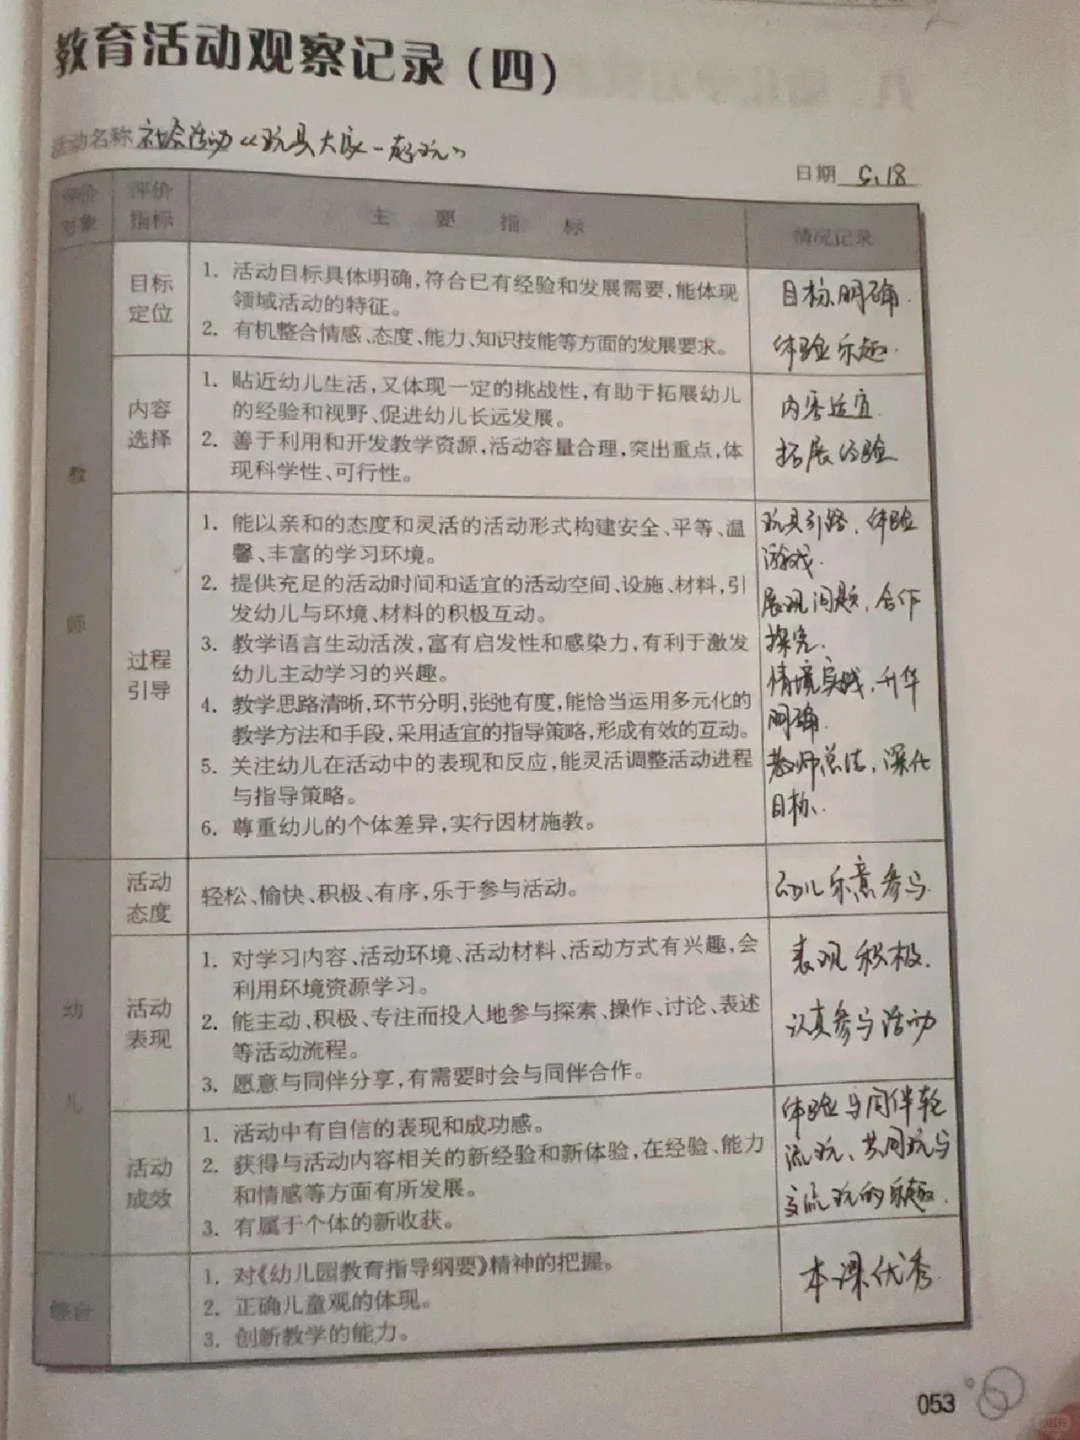 教育活动观察记录（四）
活动名称 社会活动《玩具大家一起玩》
日期 5.18
评价对象 评价指标 主要指标 情况记录
教师
目标定位
1. 活动目标具体明确，符合已有经验和发展需要，能体现
领域活动的特征。
2. 有机整合情感、态度、能力、知识技能等方面的发展要求。
目标明确.
体验乐趣.
内容选择
1. 贴近幼儿生活，又体现一定的挑战性，有助于拓展幼儿
的经验和视野、促进幼儿长远发展。
2. 善于利用和开发教学资源，活动容量合理，突出重点，体
现科学性、可行性。
内容适宜.
拓展经验
过程引导
1. 能以亲和的态度和灵活的活动形式构建安全、平等、温
馨、丰富的学习环境。
2. 提供充足的活动时间和适宜的活动空间、设施、材料，引
发幼儿与环境、材料的积极互动。
3. 教学语言生动活泼，富有启发性和感染力，有利于激发
幼儿主动学习的兴趣。
4. 教学思路清晰，环节分明，张弛有度，能恰当运用多元化的
教学方法和手段，采用适宜的指导策略，形成有效的互动。
5. 关注幼儿在活动中的表现和反应，能灵活调整活动进程
与指导策略。
6. 尊重幼儿的个体差异，实行因材施教。
玩具引路，体验
游戏.
展现问题，合作
探究.
情境实践，升华
明确.
教师总结，深化
目标.
幼儿
活动态度
轻松、愉快、积极、有序，乐于参与活动。
幼儿乐意参与.
活动表现
1. 对学习内容、活动环境、活动材料、活动方式有兴趣，会
利用环境资源学习。
2. 能主动、积极、专注而投入地参与探索、操作、讨论、表述
等活动流程。
3. 愿意与同伴分享，有需要时会与同伴合作。
表现积极.
认真参与活动
活动成效
1. 活动中有自信的表现和成功感。
2. 获得与活动内容相关的新经验和新体验，在经验、能力
和情感等方面有所发展。
3. 有属于个体的新收获。
体验与同伴轮
流玩、共同玩与
交流玩的乐趣.
综合
1. 对《幼儿园教育指导纲要》精神的把握。
2. 正确儿童观的体现。
3. 创新教学的能力。
本课优秀.
053
小红书